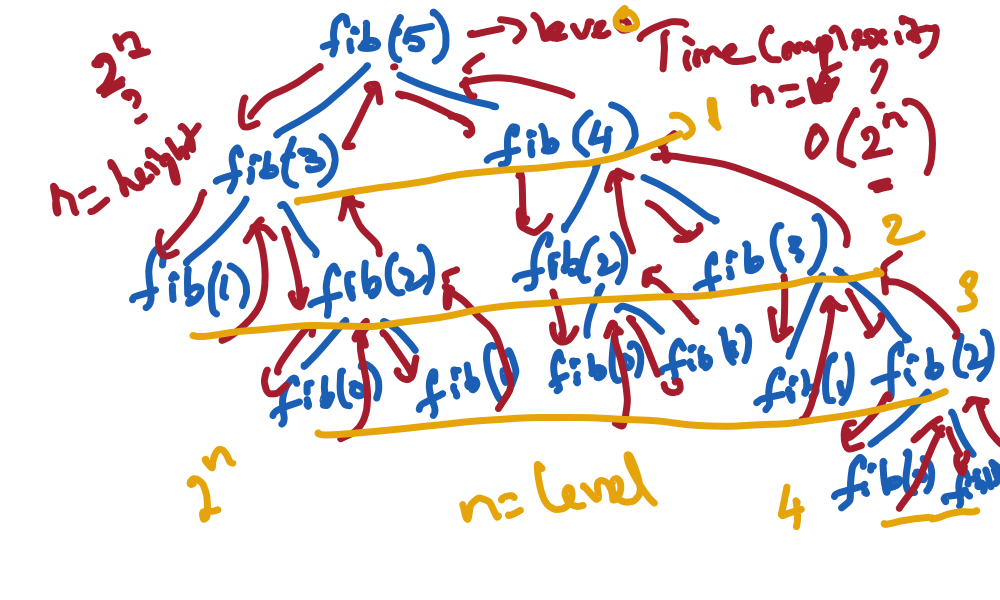 fib(5) → level 0
Time Complexity
2^n
?
n = height
n =
?
O(2^n)
fib(3) fib(4) 1
fib(1) fib(2) fib(2) fib(3) 2
3
fib(0) fib(1) fib(0) fib(1) fib(1) fib(2)
2^n
n = level
4